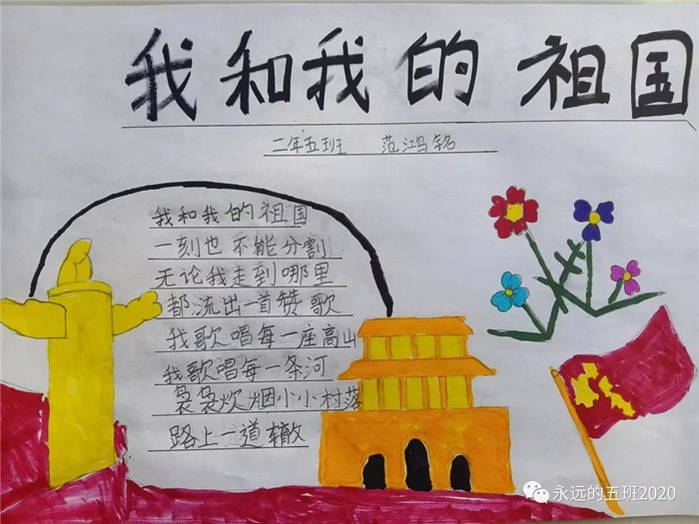 我和我的祖国
二年五班 范鸿铭
我和我的祖国
一刻也不能分割
无论我走到哪里
都流出一首赞歌
我歌唱每一座高山
我歌唱每一条河
袅袅炊烟小小村落
路上一道辙
永远的五班2020